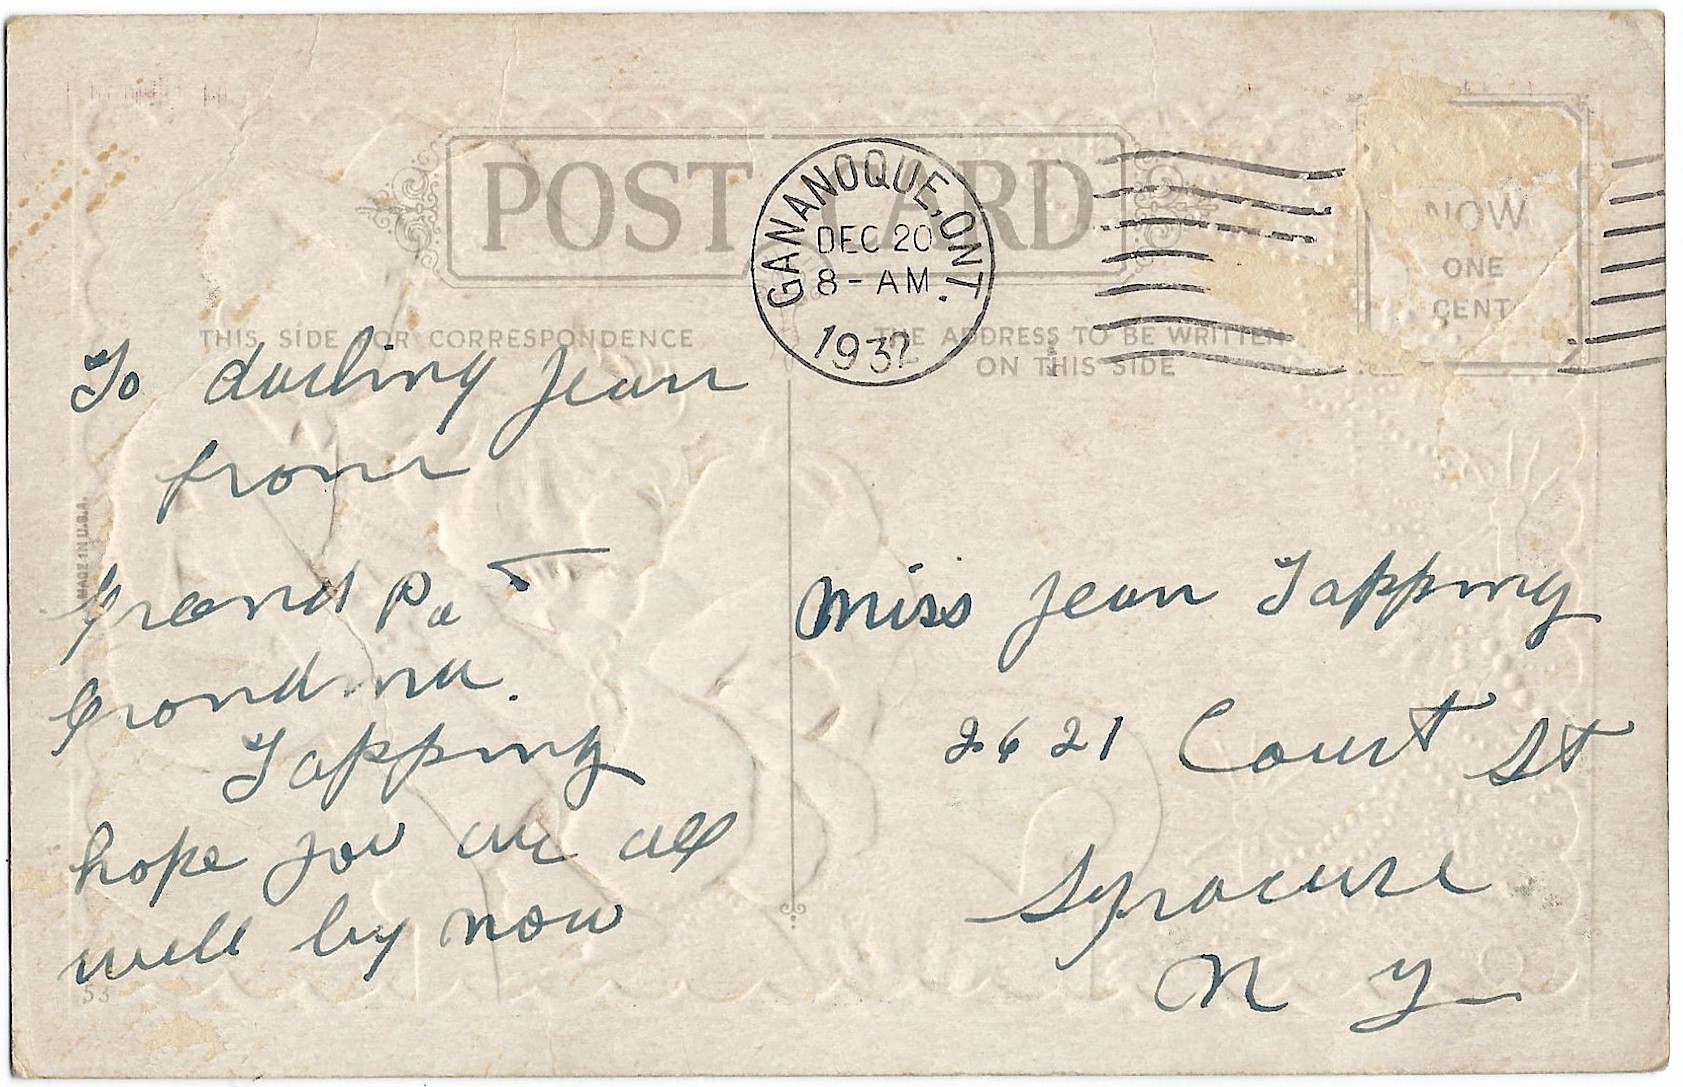 POST CARD
GANANOQUE, ONT.
DEC 20
8 - AM
1932
NOW
ONE
CENT
THIS SIDE FOR CORRESPONDENCE
THE ADDRESS TO BE WRITTEN
ON THIS SIDE
To darling Jean
from
Grand Pa
Grandma.
Tapping
hope you are all
well by now
Miss Jean Tapping
2621 Court St
Syracuse
N Y
MADE IN U.S.A.
53